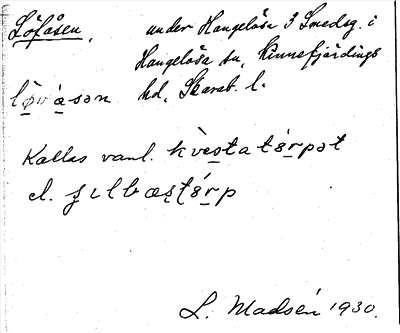 Löfåsen, under Hangelösa 3 Smedsg. i
Hangelösa sn, Kinnefjärdings
lø̀vȧsən hd, Skarab. l.
Kallas vanl. kvèstatɵ́rpət
el. gılbæstɵ́rp
L. Madsén 1930.